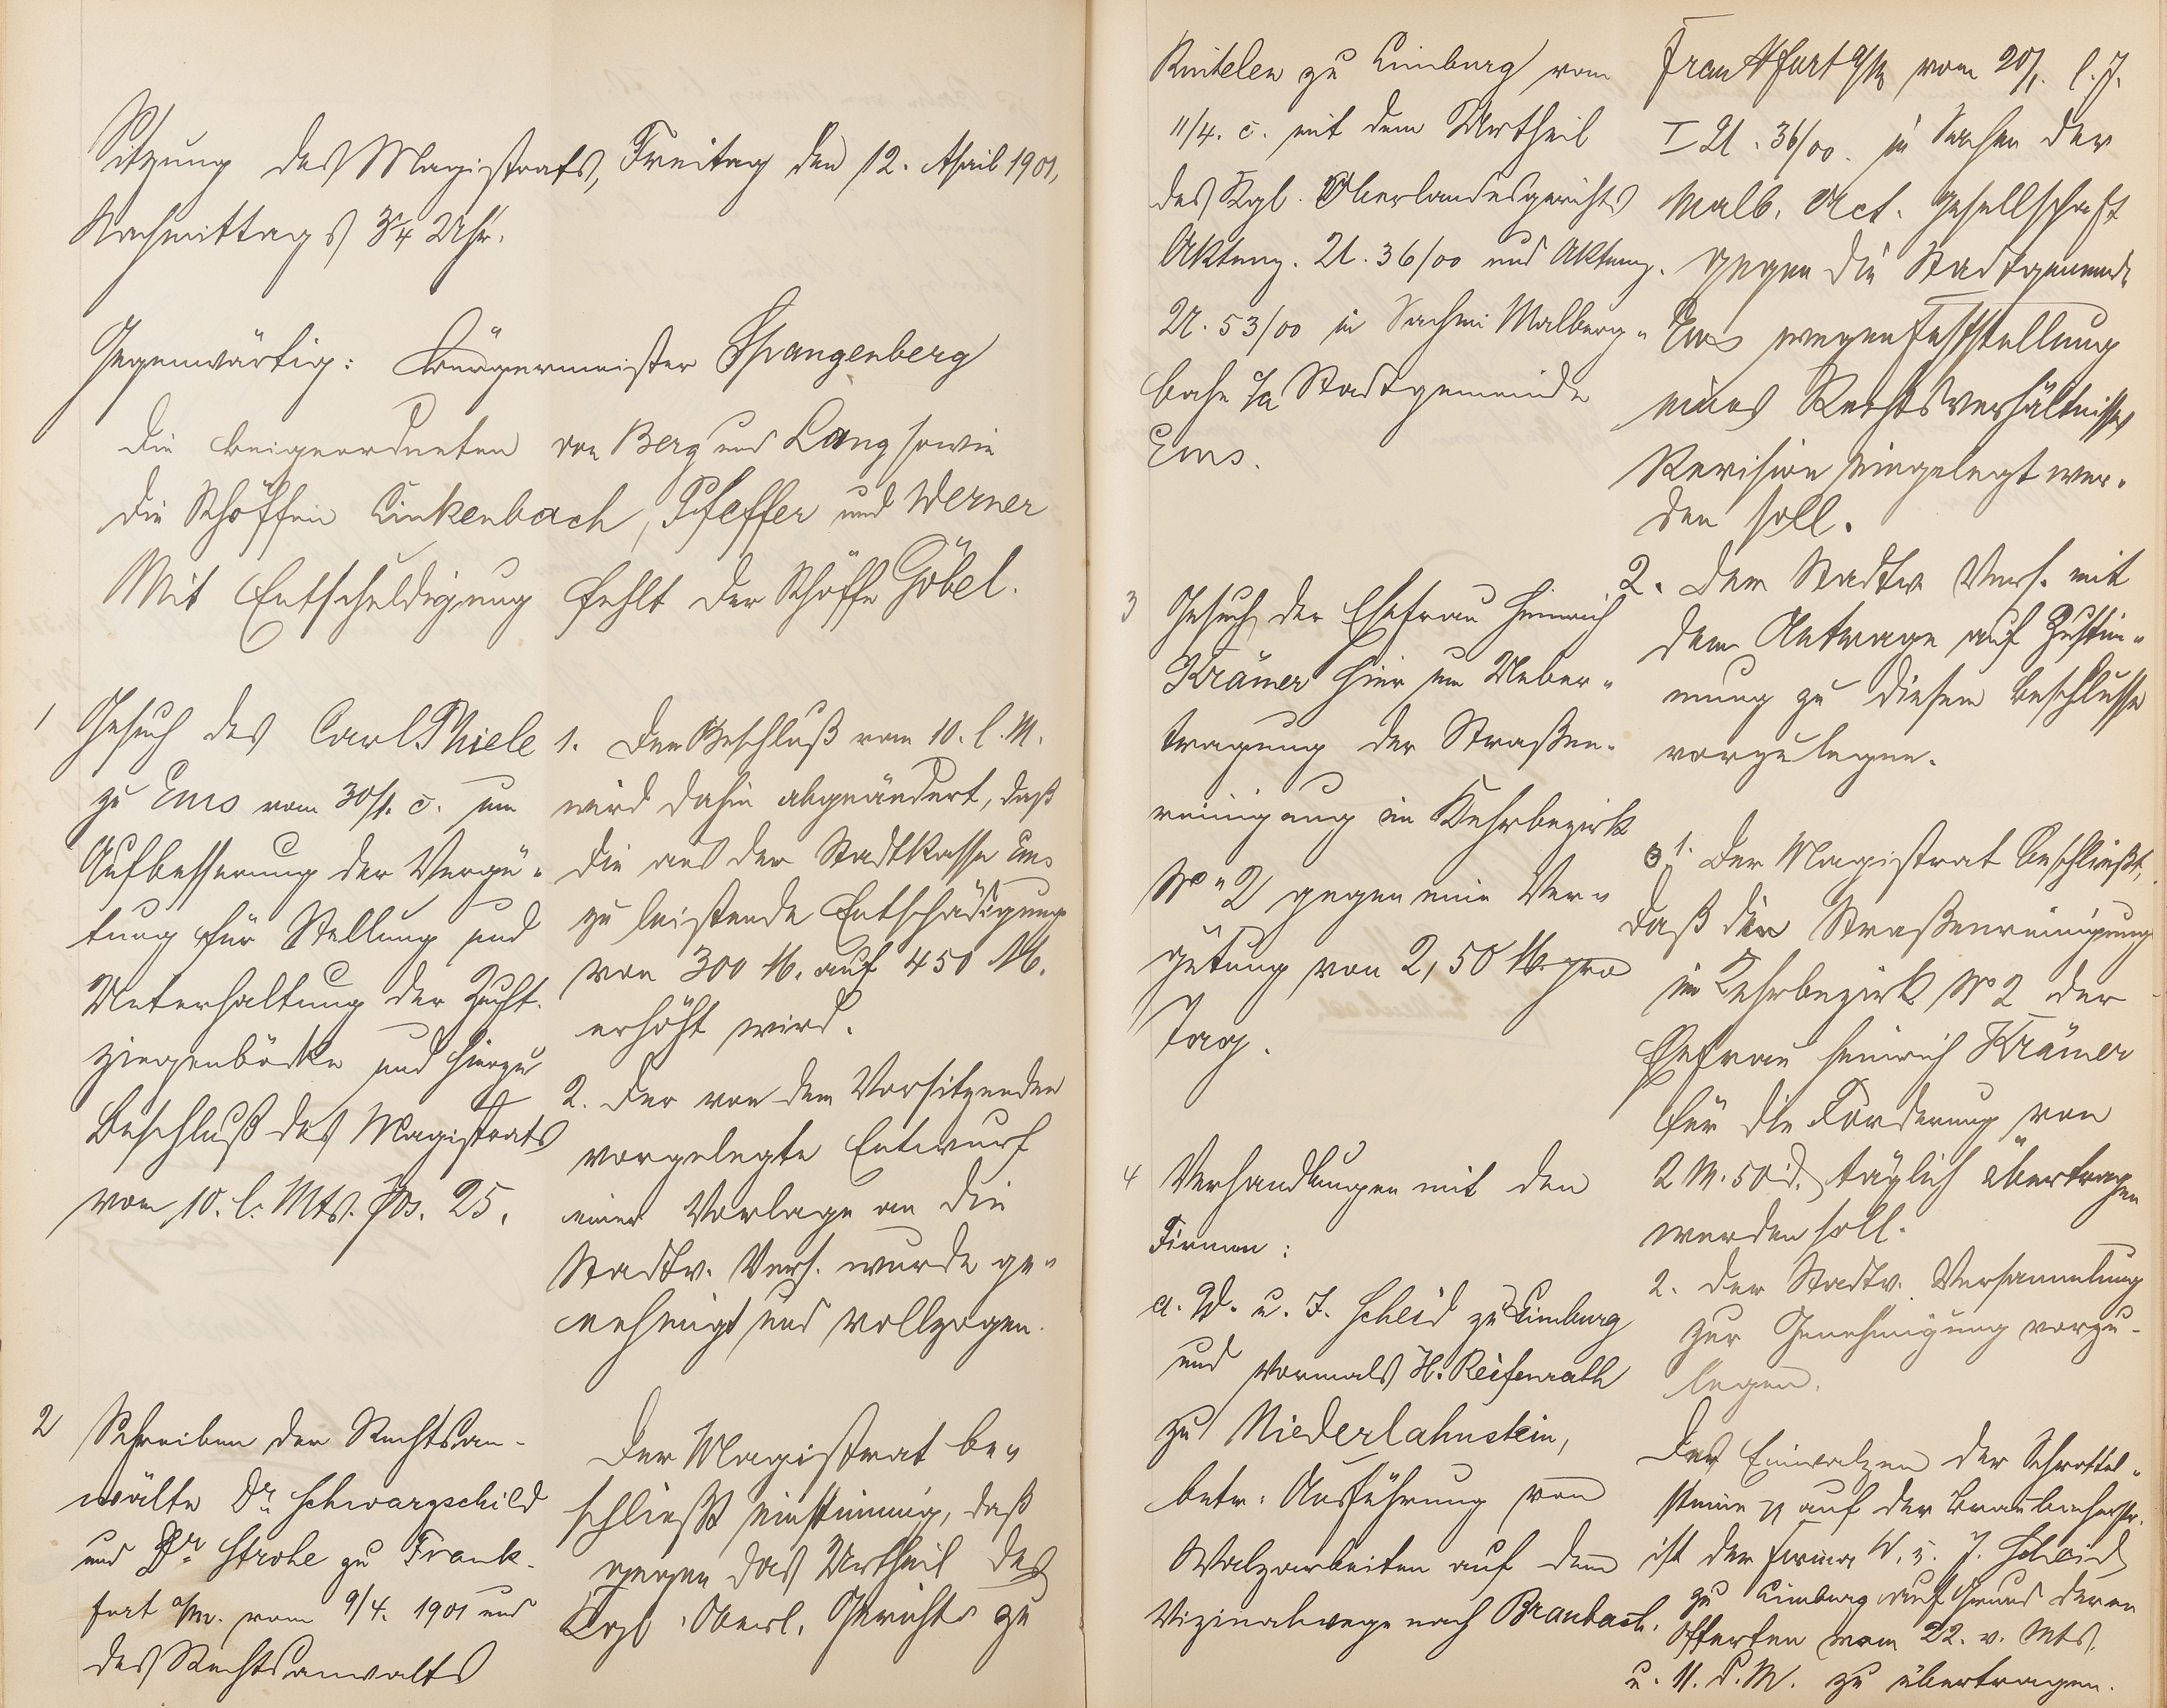 Sitzung des Magistrats, Freitag den 12. April 1901,
Nachmittags 3¾ Uhr.
Gegenwärtig: Bürgermeister Spangenberg
die Beigeordneten von Berg und Lang sowie
die Schöffen Linkenbach, Pfeffer und Werner
Mit Entschuldigung fehlt der Schöffe Göbel.
1
Gesuch des Carl Thiele
zu Ems vom 30/1. c. um
Aufbesserung der Vergü-
tung für Stellung und
Unterhaltung der Zucht-
ziegenböcke und hierzu
Beschluß des Magistrats
vom 10. l. Mts. Pos. 25.
1. Der Beschluß vom 10. l. M.
wird dahin abgeändert, daß
die aus der Stadtkasse Ems
zu leistende Entschädigung
von 300 M. auf 450 M.
erhöht wird.
2. Der von dem Vorsitzenden
vorgelegte Entwurf
einer Vorlage an die
Stadtv. Vers. wurde ge-
nehmigt und vollzogen.
2
Schreiben der Rechtsan-
wälte Dr. Schwarzschild
und Dr. Strohe zu Frank-
furt a/m. vom 9/4. 1901 und
des Rechtsanwalts
Der Magistrat be-
schließt einstimmig, daß
gegen das Urtheil des
Kgl. Oberl. Gerichts zu
Rintelen zu Limburg vom
11/4. c. mit dem Urtheil
des Kgl. Oberlandesgerichts
Aktenz. U. 36/00 und Aktenz.
U. 53/00 in Sachen Malberg-
bahn c/a Stadtgemeinde
Ems.
Frankfurt a/M vom 20/1. l. J.
I U. 36/00. in Sachen der
Malb. Act. Gesellschaft
gegen die Stadtgemeinde
Ems wegen Feststellung
eines Rechtsverhältnisses
Revision eingelegt wer-
den soll.
2. Der Stadtv. Vers. mit
dem Antrage auf Zustim-
mung zu diesem Beschlusse
vorzulegen.
3
Gesuch der Ehefrau Heinrich
Krämer hier um Ueber-
tragung der Straßen-
reinigung im Kehrbezirk
No 2 gegen eine Ver-
gütung von 2,50 M. pro
Tag.
1. Der Magistrat beschließt,
daß die Straßenreinigung
im Kehrbezirk No 2 der
Ehefrau Heinrich Krämer
für die Forderung von
2 M. 50 d. täglich übertragen
werden soll.
2. Der Stadtv. Versammlung
zur Genehmigung vorzu-
legen.
4
Verhandlungen mit den
Firmen:
a. W. u. J. Scheid zu Limburg
und vormals H. Reifenrath
zu Niederlahnstein,
betr: Ausführung von
Walzarbeiten auf dem
Vizinalwege nach Braubach.
Das Einwalzen der Schrottel-
steine auf der Braubacherstr.
ist der Firma W. u. J. Scheid
zu Limburg auf Grund deren
Offerten vom 22. v. Mts.
u. 11. d. M. zu übertragen.